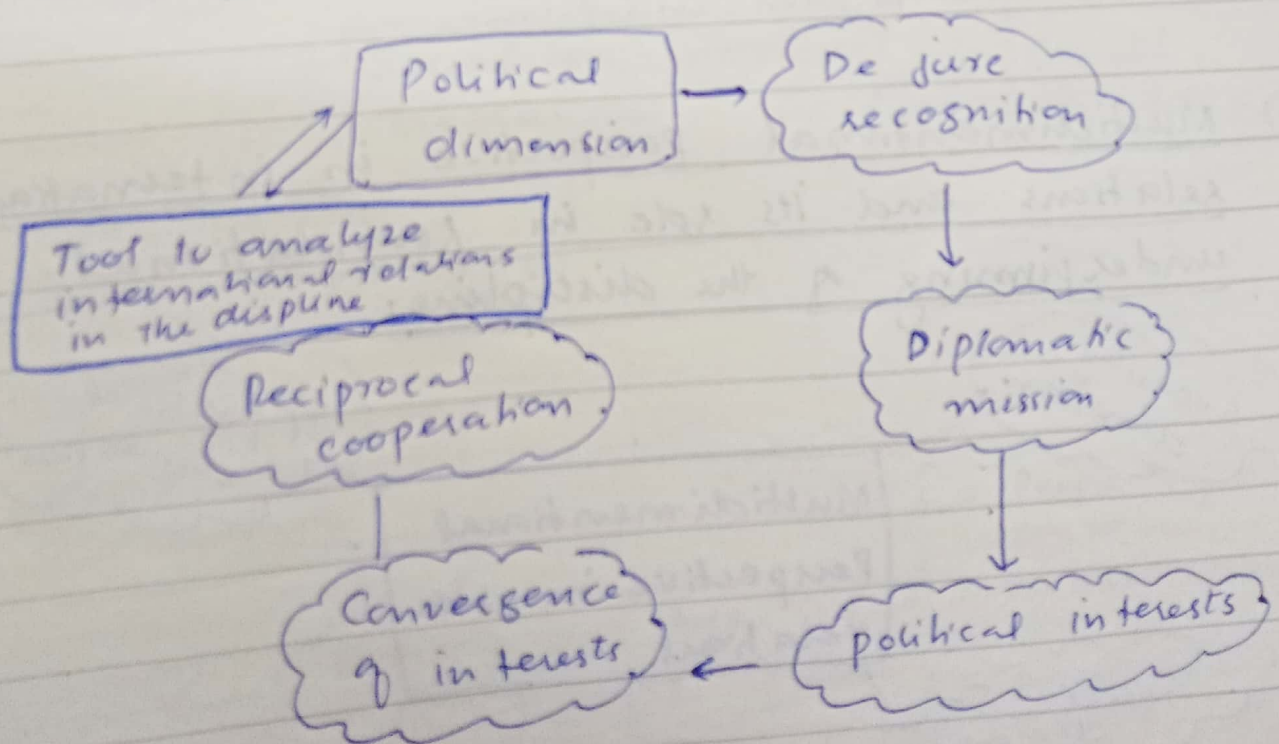 Political
dimension
De jure
recognition
Tool to analyze
international relations
in the displine
Diplomatic
mission
Reciprocal
cooperation
Convergence
of interests
political interests